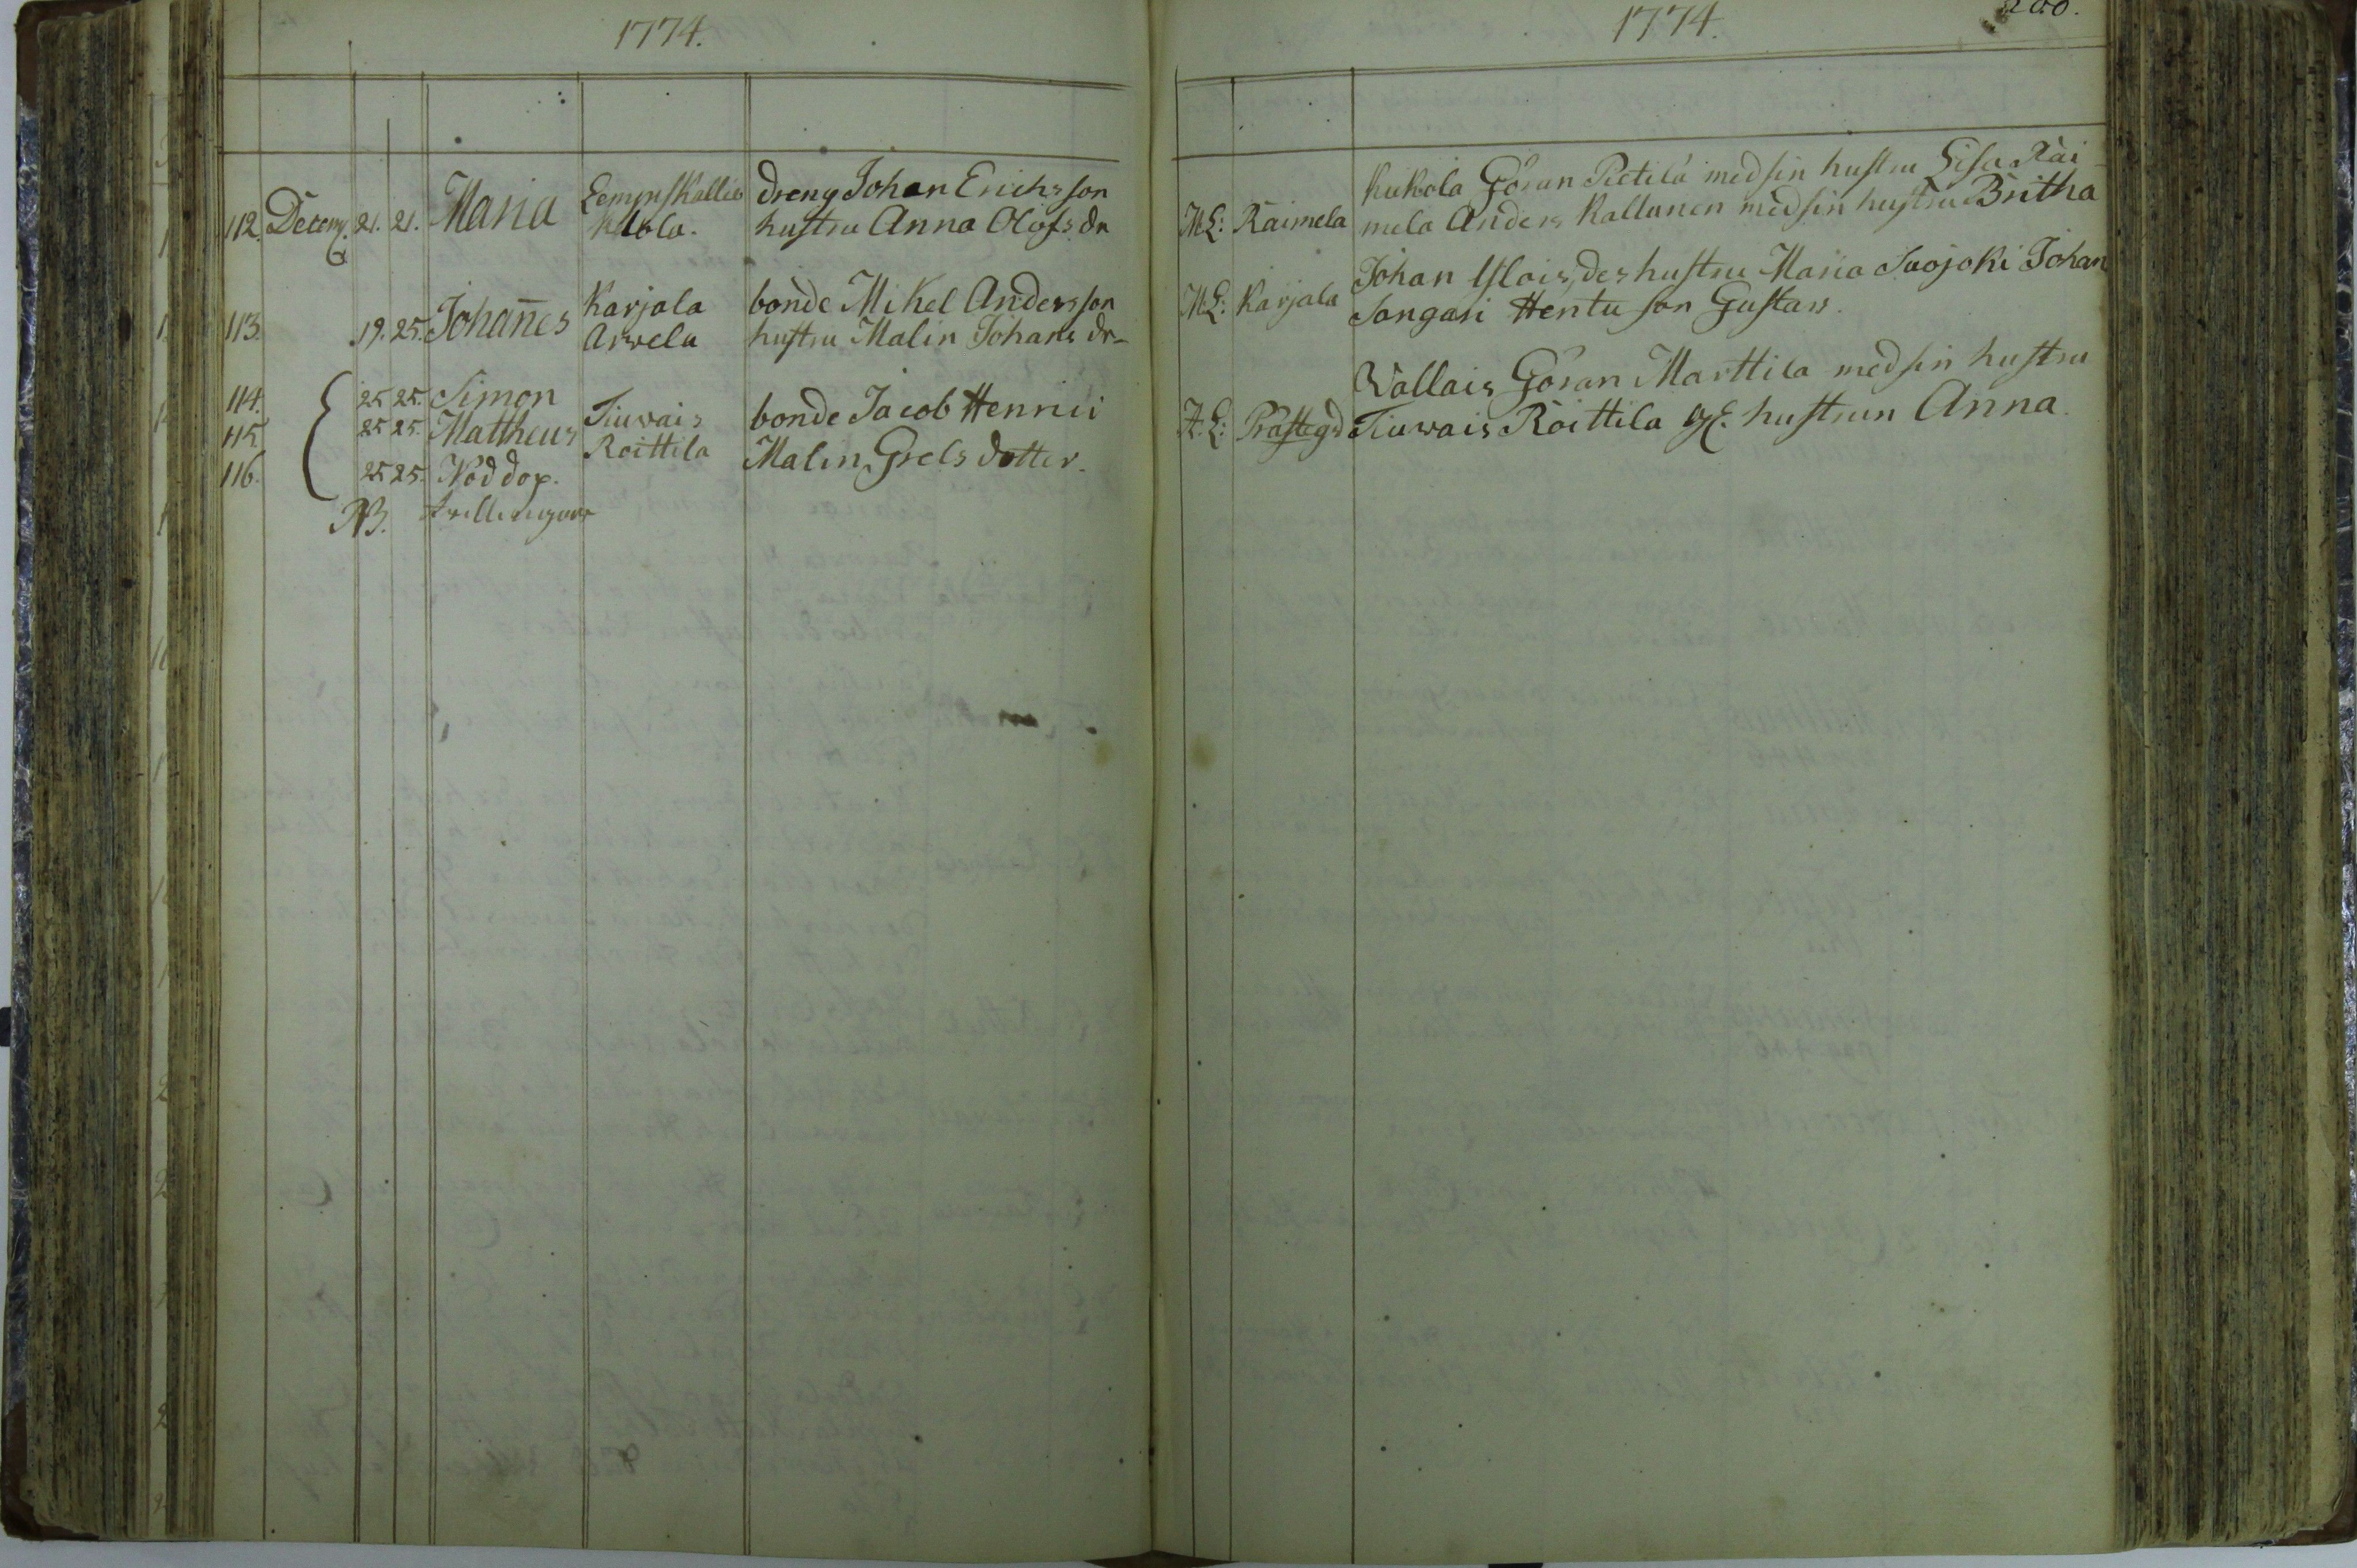 1774.
112. Decemb. 21. 21. Maria
hukola.
dreng Johan Erichs son
hustru Anna Olofs dr
113. 19. 25. Johañes
Karjala
Arwela
bonde Mikel Anders son
hustru Malin Johans dr
114. 25 25. Simon
115. 25 25. Mattheus
116. 25 25. Nöd döp.
Tiuvais
Roittila
bonde Jacob Henrici
Malin Grels dotter.
NB. trillingar
1774.
M.L: Räimela
Kukola Göran Pietilä med sin hustru Lisa Räi
mela Anders Kallunen med sin hustru Britha
M.L: Karjala
Johan Yslois, des hustru Maria Suojoki Johan
Songari Hentu son Gustav.
A.L: Prästegd
Wallais Göran Marttila med sin hustru
Tiuvais Röittila hustrun Anna.